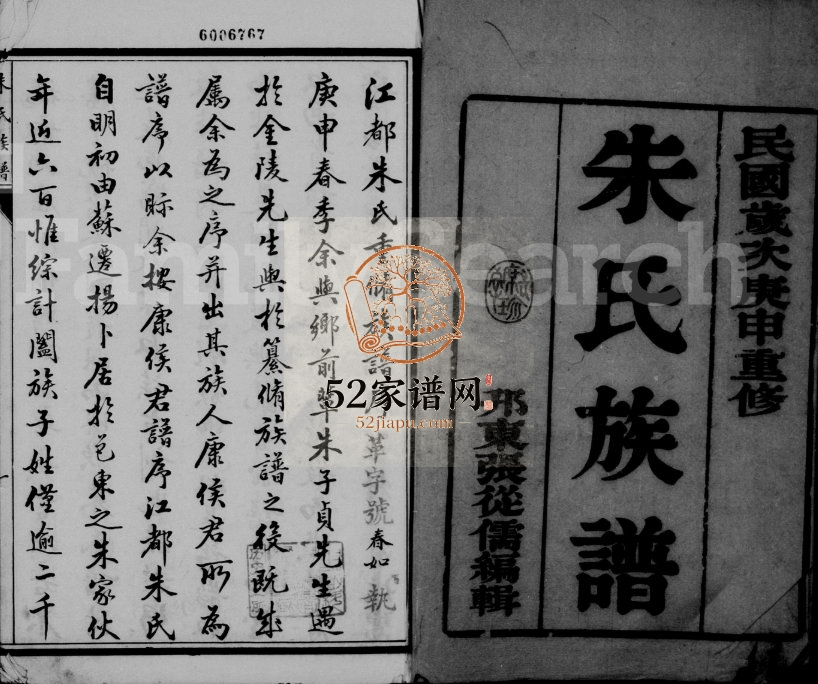 民國歲次庚申重修
朱氏族譜
邗東張從儒編輯
6006767
江都朱氏重脩族譜序 革字號 春如 執
庚申春季余與鄉前輩朱子貞先生遇
於金陵先生與於纂脩族譜之役既成
屬余為之序并出其族人康侯君所為
譜序以眎余按康侯君譜序江都朱氏
自明初由蘇遷揚卜居於邑東之朱家伙
年近六百惟綜計闔族子姓僅逾二千
朱氏族譜
FamilySearch
52家谱网
52jiapu.com